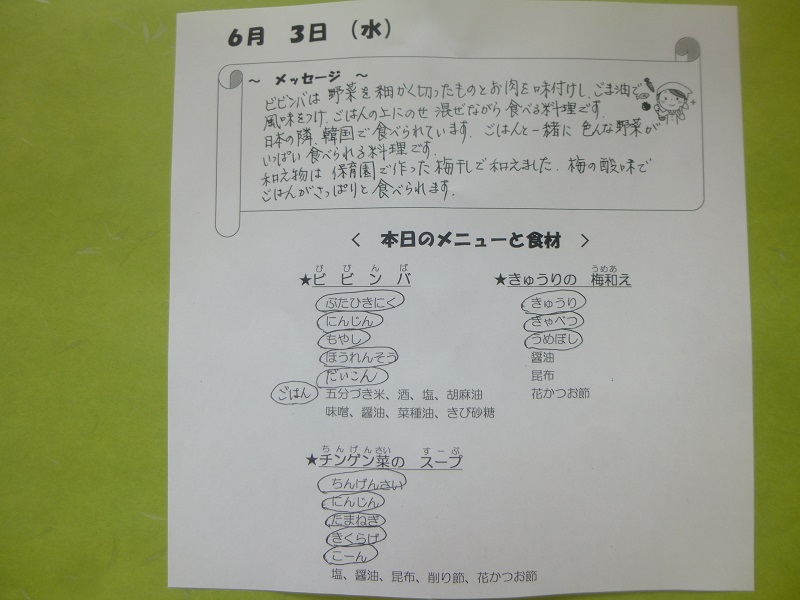 6月 3日 (水)
～ メッセージ ～
ビビンバは 野菜を細かく切ったものとお肉を味付けし、ごま油で
風味をつけ、ごはんの上にのせ 混ぜながら 食べる料理です。
日本の隣、韓国で食べられています。 ごはんと一緒に 色んな野菜が
いっぱい 食べられる料理です。
和え物は 保育園で作った梅干しで和えました。 梅の酸味で
ごはんがさっぱりと 食べられます。
＜ 本日のメニューと食材 ＞
び び ん ば
★ビ ビ ン バ
ぶたひきにく
にんじん
もやし
ほうれんそう
だいこん
ごはん 五分づき米、酒、塩、胡麻油
味噌、醤油、菜種油、きび砂糖
うめあ
★きゅうりの 梅和え
きゅうり
きゃべつ
うめぼし
醤油
昆布
花かつお節
ちんげんさい すーぷ
★チンゲン菜の スープ
ちんげんさい
にんじん
たまねぎ
きくらげ
こーん
塩、醤油、昆布、削り節、花かつお節